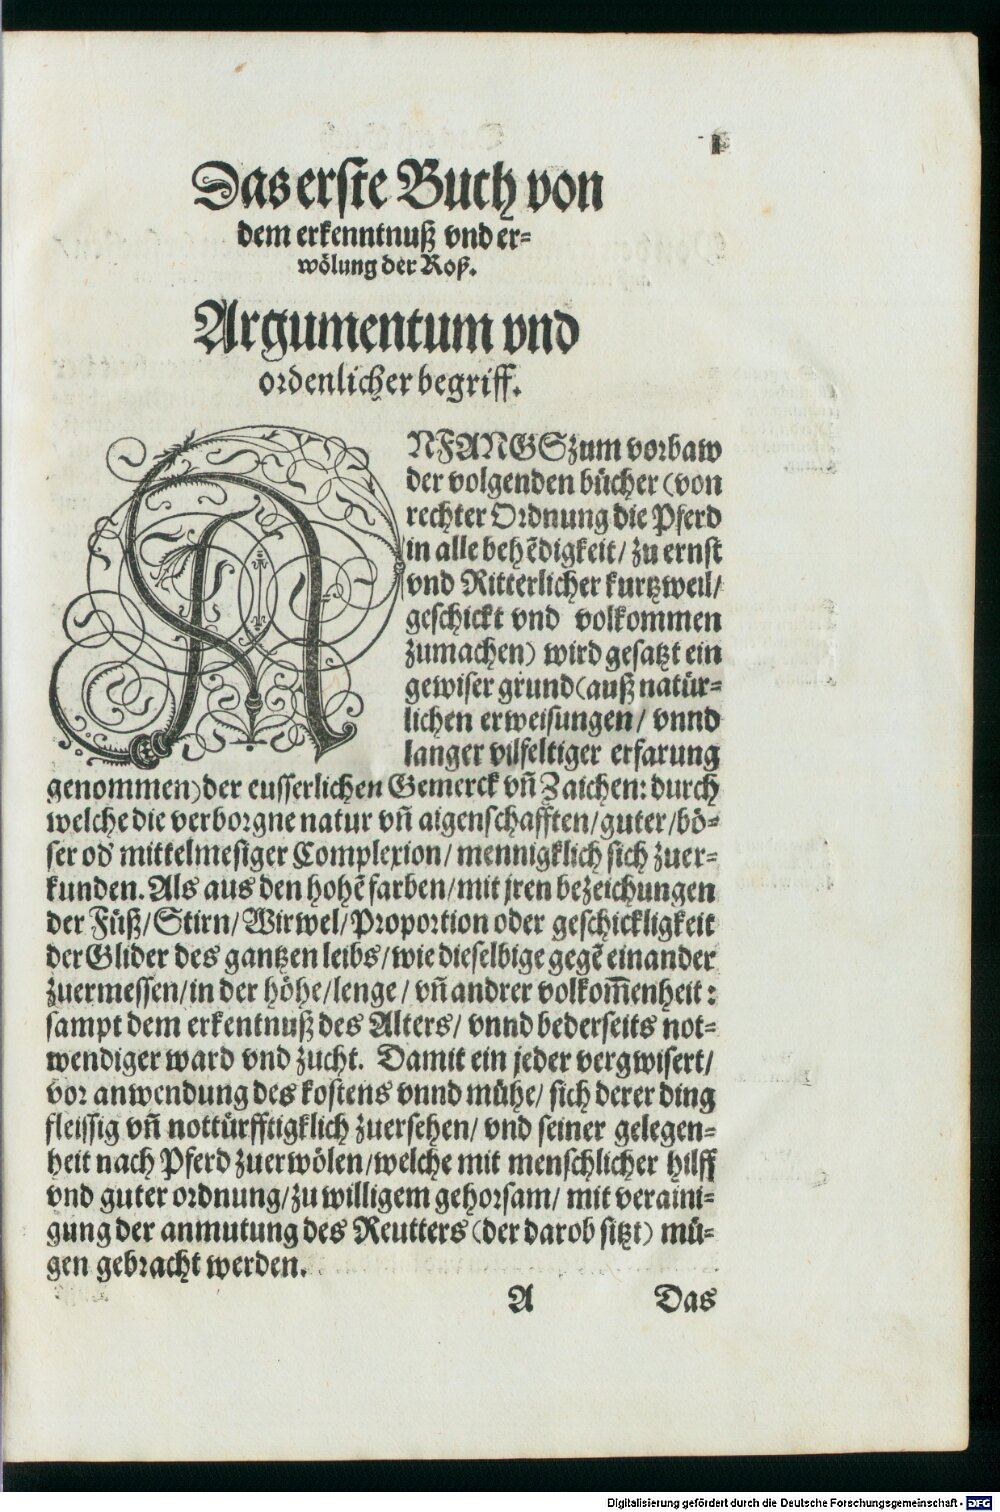 1
Das erste Buch von
dem erkenntnuß vnd er⸗
wölung der Roß.
Argumentum vnd
ordenlicher begriff.
ANFANGS zum vorbaw
der volgenden bücher (von
rechter Ordnung die Pferd
in alle behẽdigkeit/ zu ernst
vnd Ritterlicher kurtzweil/
geschickt vnd volkommen
zumachen) wird gesatzt ein
gewiser grund (auß natür⸗
lichen erweisungen/ vnnd
langer vilfeltiger erfarung
genommen) der eusserlichen Gemerck vñ Zaichen: durch
welche die verborgne natur vñ aigenschafften/ guter/ bö⸗
ser od mittelmesiger Complexion/ mennigklich sich zuer⸗
kunden. Als aus den hohẽ farben/ mit jren bezeichungen
der Füß/ Stirn/ Wirwel/ Proportion oder geschickligkeit
der Glider des gantzen leibs/ wie dieselbige gegẽ einander
zuermessen/ in der höhe/ lenge/ vñ andrer volkom̃enheit:
sampt dem erkentnuß des Alters/ vnnd bederseits not⸗
wendiger ward vnd zucht. Damit ein jeder vergwisert/
vor anwendung des kostens vnnd mühe/ sich derer ding
fleissig vñ nottürfftigklich zuersehen/ vnd seiner gelegen⸗
heit nach Pferd zuerwölen/ welche mit menschlicher hilff
vnd guter ordnung/ zu willigem gehorsam/ mit veraini⸗
gung der anmutung des Reutters (der darob sitzt) mü⸗
gen gebracht werden.
A Das
Digitalisierung gefördert durch die Deutsche Forschungsgemeinschaft - DFG